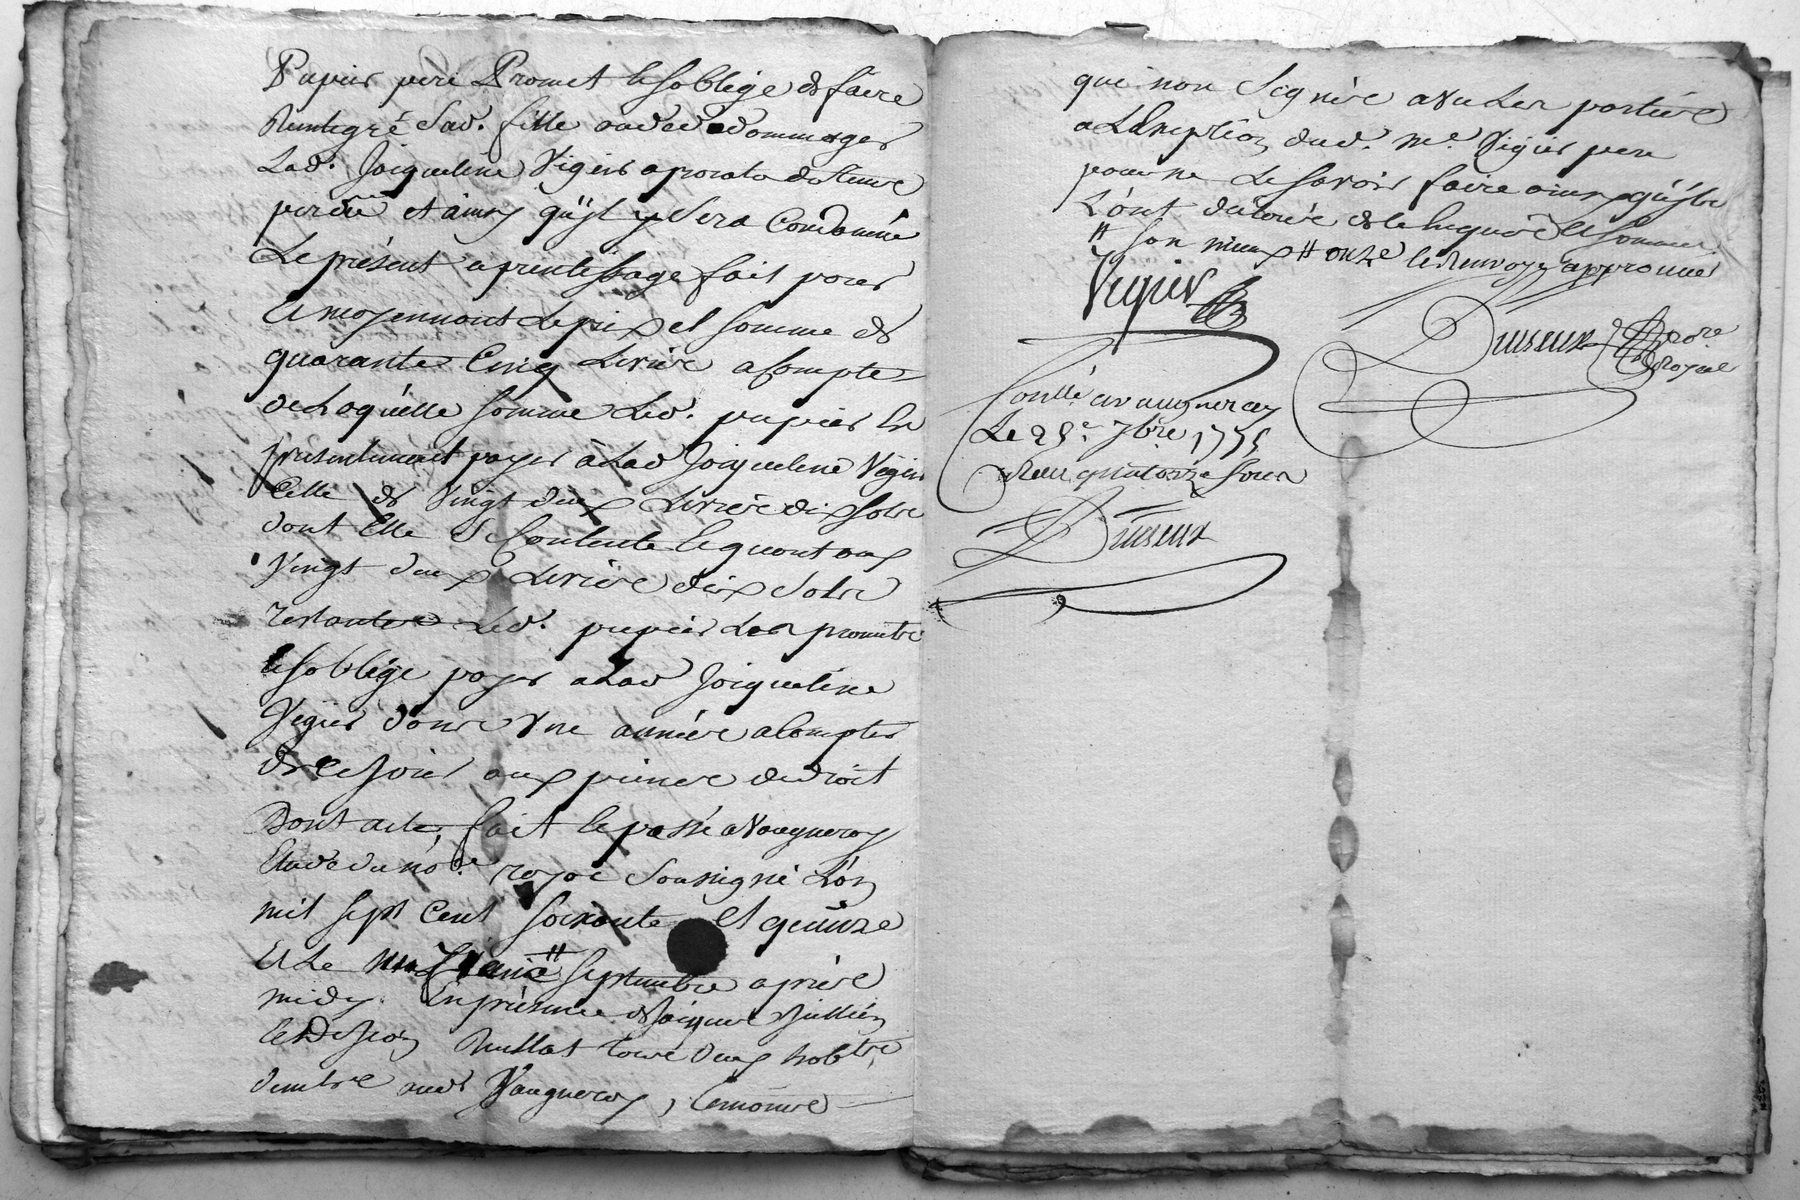 Pupier pere Promet Et soblige de faire
Rintegré Sad. fille aud. dommages
Lad. Jacqueline Vigier a prorata du temps
perdu et ainsy qu'jl y Sera Condamné
Le présent aprentissage fait pour
Et moyennant Le prix et Somme de
quarante Cinq Livres a Compte
de Laquelle Somme Led. pupier En
présentement payer à Lad Jacqueline Vigier
Celle de Vingt deux Livres dix Sols
dont Elle Se Contente Et quant aux
Vingt deux Livres dix Sols
restante Led. pupier Les promet
Et soblige payer a Lad Jacqueline
Vigier dans Vne année a Compter
de Ce jour aux peines de droit
Dont acte, fait Et passé a Vaugneray
Etude du no.re royal Soussigné L'an
mil sept Cent Soixante Et quinze
Et Le # Septembre après
midy. En présence de Jacques Jullien
Et Mullat touts deux habts.
dud Vaugneray, temoins
qui non Signés avec Les parties
a L'exception dud. Me. Vigier pere
pour ne Le Savoir faire ainsy qu'ils
L'ont déclaré de Ce Enquis Et Sommés
# onze Le Renvoye approuvé
Vigier
Duseux No.re
royal
Con.llé a vaugneray
Le 25e. 7bre 1775
Reçu quatorze Sous
Duseux